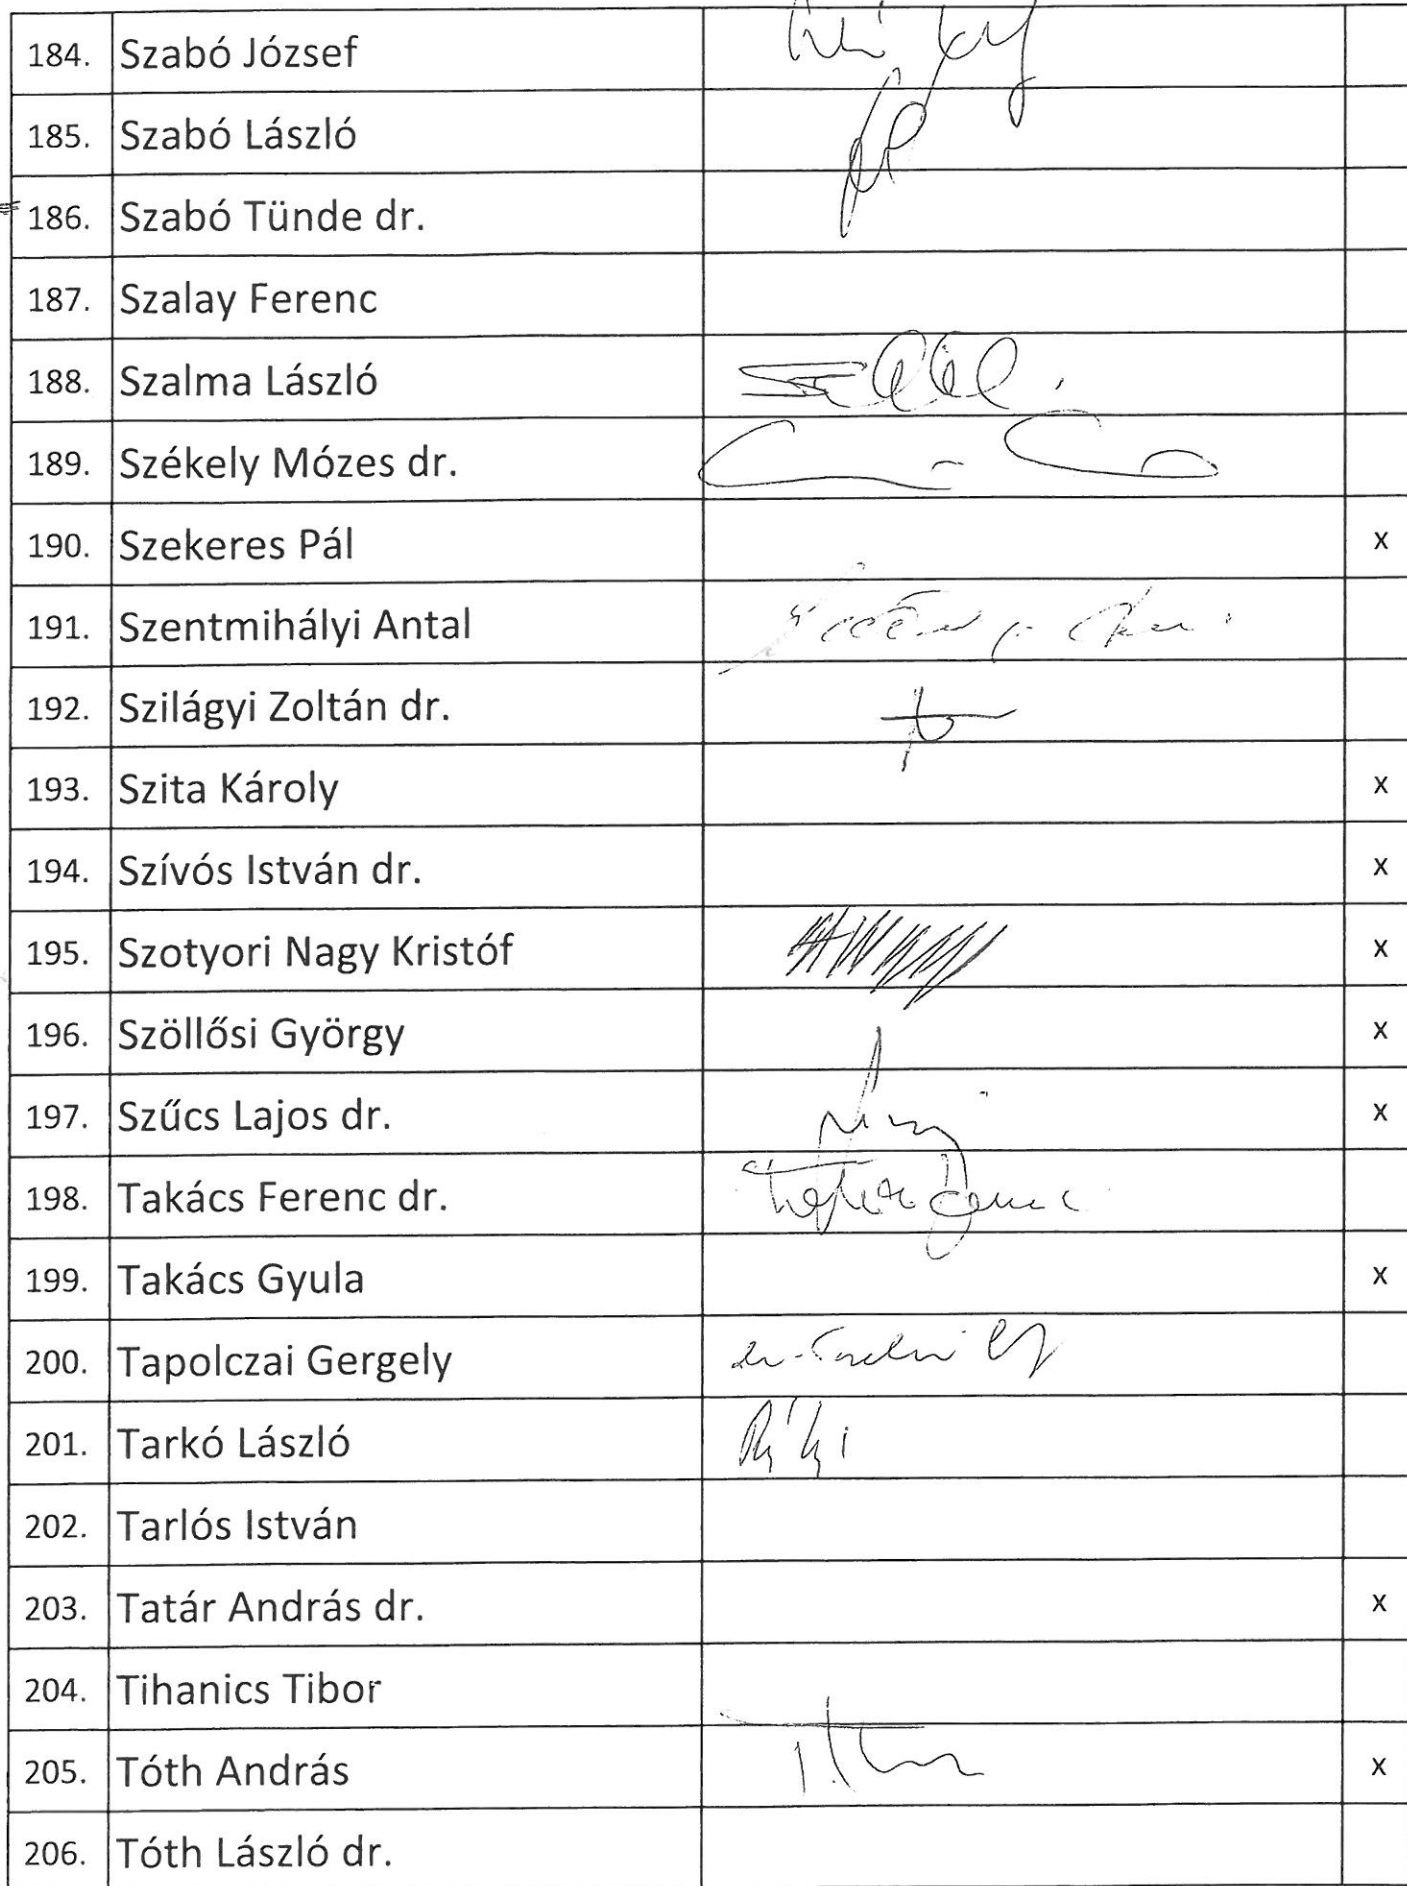 184. Szabó József
185. Szabó László
186. Szabó Tünde dr.
187. Szalay Ferenc
188. Szalma László
189. Székely Mózes dr.
190. Szekeres Pál x
191. Szentmihályi Antal
192. Szilágyi Zoltán dr.
193. Szita Károly x
194. Szívós István dr. x
195. Szotyori Nagy Kristóf x
196. Szöllősi György x
197. Szűcs Lajos dr. x
198. Takács Ferenc dr.
199. Takács Gyula x
200. Tapolczai Gergely
201. Tarkó László
202. Tarlós István
203. Tatár András dr. x
204. Tihanics Tibor
205. Tóth András x
206. Tóth László dr.